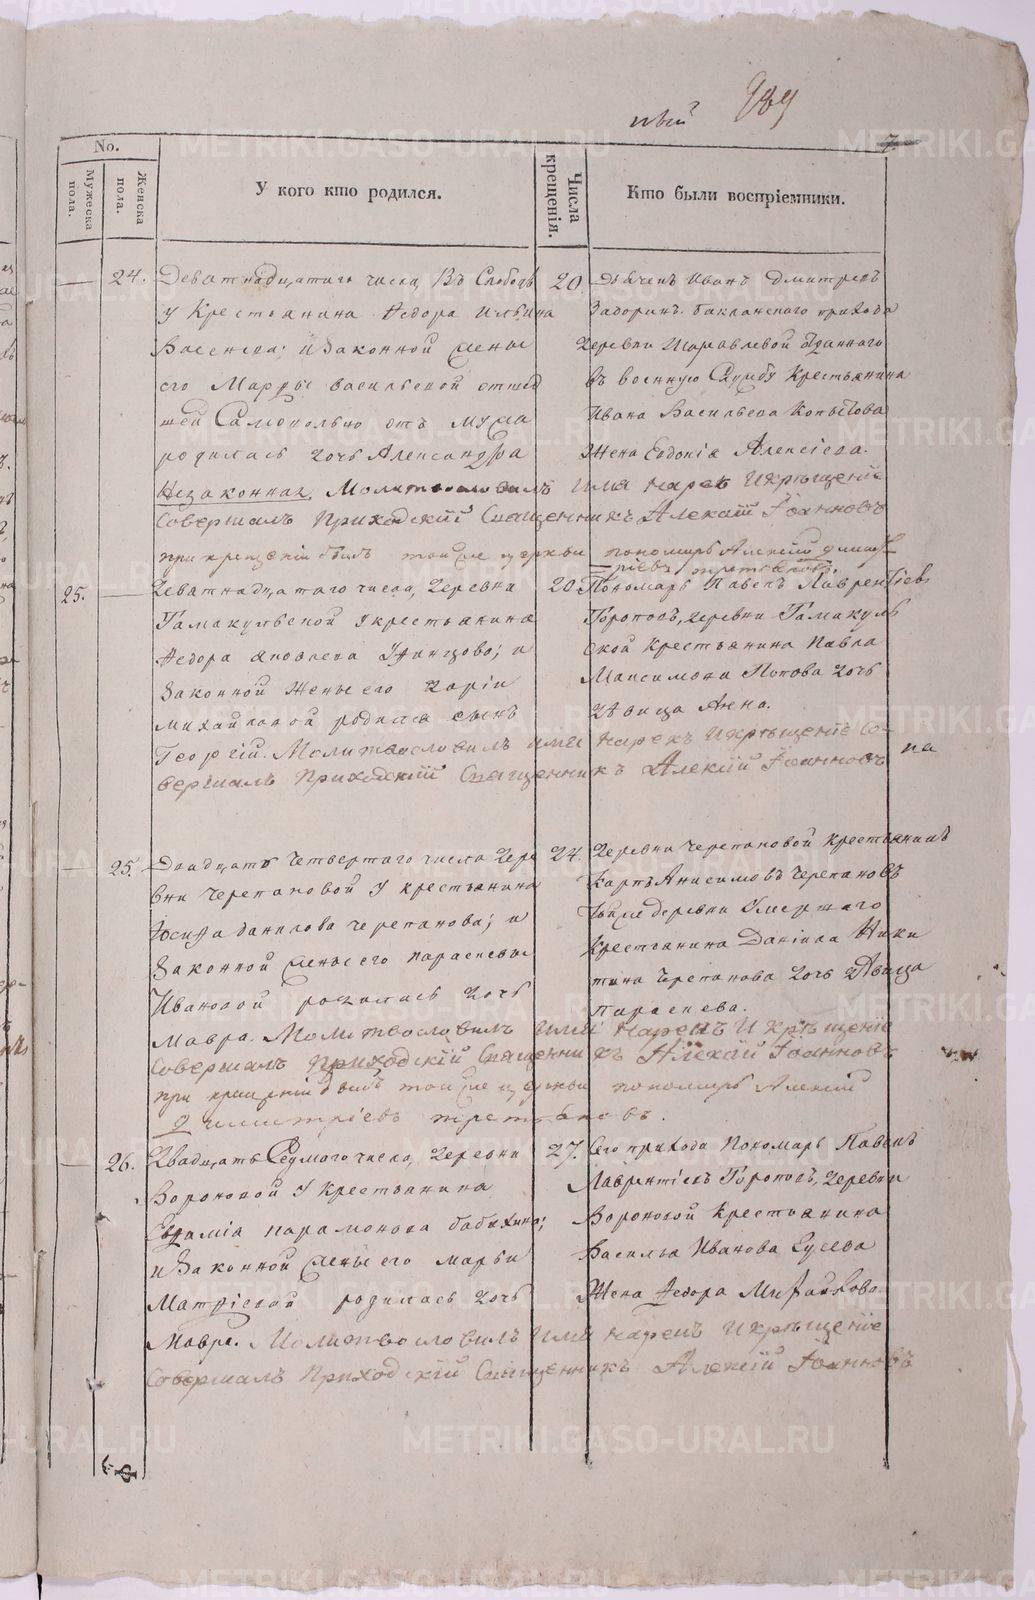 ивый 989
7.
No.
Мужеска пола.
Женска пола.
У кого кто родился.
Числа крещенія.
Кто были воспріемники.
24. Деватнадцатаго числа, Въ Слободѣ
у Крестьянина Ѳедора Ильина
и Законной Жены
его Марфы васильевой отшед
шей Самопольно отъ мужа
родилась дочь Александра
Незаконная. Молитвословилъ имя нарекъ и крѣщеніе
Совершалъ Приходскій Священникъ Алексій Іоанновъ
при крещеніи былъ тойже церкви пономарь Алексій Димит
ріевъ третьяковъ.
20. Дьячекъ Иванъ Дмитревъ
Задоринъ. бакланскаго прихода
деревни Журавлевой отданнаго
въ военную Службу Крестьянина
Ивана Васильева Копытова
Жена Евдокія Алексіева.
25. Деватнадцатаго числа, деревни
Гамакульской у крестьянина
Ѳедора яковлева и
Законной Жены его Даріи
михайловой родился сынъ
Георгій. Молитвословилъ имя нарекъ и крѣщеніе со-
вершалъ Приходскій Священникъ Алексій Іоанновъ
20. Пономарь Павелъ Лаврентіевъ
Торопов, деревни Гамакуль
ской крестьянина Павла
Максимова Попова дочь
дѣвица Анна.
на
25. Двадцать Четвертаго числа дере
вни Черепановой у крестьянина
Іосифа данилова черепанова; и
Законной Жены его парасковьи
Ивановой родилась дочь
мавра. Молитвословилъ имя нарекъ и крѣщеніе
Совершалъ Приходскій Священникъ Алексій Іоанновъ
при крещеніи былъ тойже церкви пономарь Алексій
Димитріевъ третьяковъ.
24. Деревни Черепановой крестьянинъ
Карпъ Анисимовъ Черепановъ
Тойже деревни Умершаго
Крестьянина Даніила Ники
тина Черепанова дочь дѣвица
параскева.
26. Двадцать Седмаго числа, деревни
Вороновой у Крестьянина
Евфиміа парамонова бабихина;
и Законной Жены его марьи
Матфіевой родилась дочь
мавра. Молитвословилъ имя нарекъ и крѣщеніе
Совершалъ Приходскій Священникъ Алексій Іоанновъ
27. Сего прихода Пономарь Павелъ
Лаврентіевъ Тороповъ, деревни
Вороновой Крестьянина
Василья Иванова Гусева
Жена Ѳедора Михайлова.
METRIKI.GASO-URAL.RU